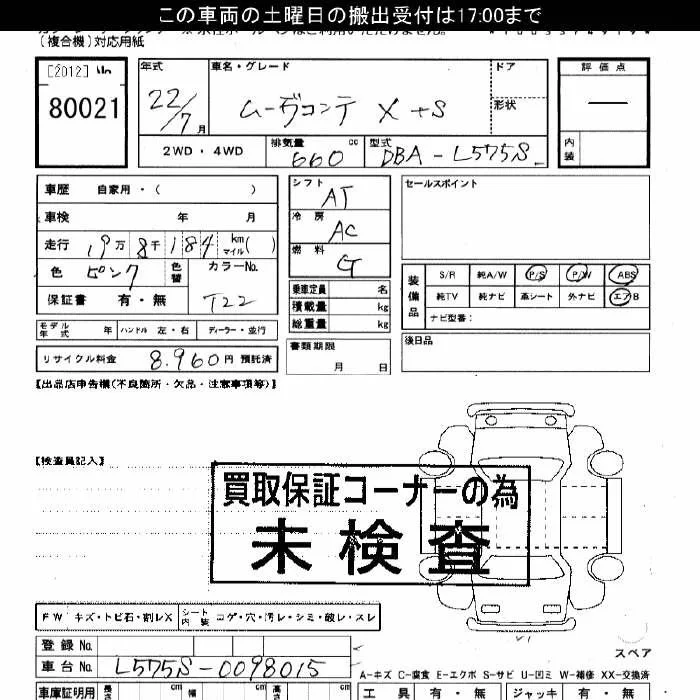 この車両の土曜日の搬出受付は17:00まで
(複合機)対応用紙
[2012]
80021
年式
22/7月
車名・グレード
ムーヴコンテ X +S
ドア
形状
評価点
—
内装
2WD・4WD
排気量
660 cc
型式
DBA-L575S
車歴 自家用・( )
車検 年 月
走行 19万8千184 km マイル( )
色 ピンク
色替
カラーNo.
T22
保証書 有・無
シフト
AT
冷房
AC
燃料
G
乗車定員 名
積載量 kg
総重量 kg
セールスポイント
装備品
S/R 純A/W P/S P/W ABS
純TV 純ナビ 革シート 外ナビ エアB
ナビ型番:
モデル年式 年 ハンドル 左・右 ディーラー・並行
リサイクル料金 8.960円 預託済
書類期限
月 日
後日品
【出品店申告欄(不良箇所・欠品・注意事項等)】
【検査員記入】
買取保証コーナーの為
未検査
FW キズ・トビ石・割レX
シート内装 コゲ・穴・汚レ・シミ・破レ・スレ
登録 No.
車台 No. L575S-0098015
スペア
A-キズ C-腐食 E-エクボ S-サビ U-凹ミ W-補修 XX-交換済
車庫証明用 長さ cm 幅 cm 高さ cm
工具 有・無 ジャッキ 有・無